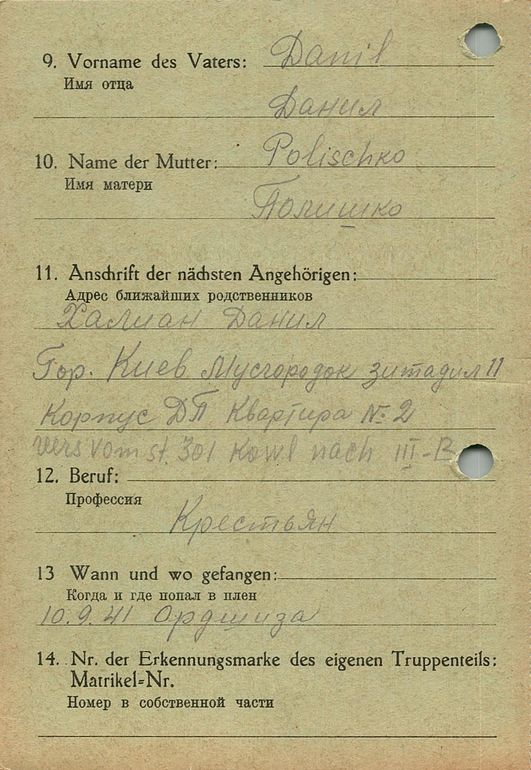 9. Vorname des Vaters: Danil
Имя отца
Данил
10. Name der Mutter: Polischko
Имя матери
Полишко
11. Anschrift der nächsten Angehörigen:
Адрес ближайших родственников
Халиан Данил
Гор. Киев Мусгородок зитадил 11
Корпус ДП Квартира № 2
vers vom st. 301 Kowl nach III-B
12. Beruf:
Профессия
Крестьян
13 Wann und wo gefangen:
Когда и где попал в плен
10.9.41 Ордшиза
14. Nr. der Erkennungsmarke des eigenen Truppenteils:
Matrikel-Nr.
Номер в собственной части